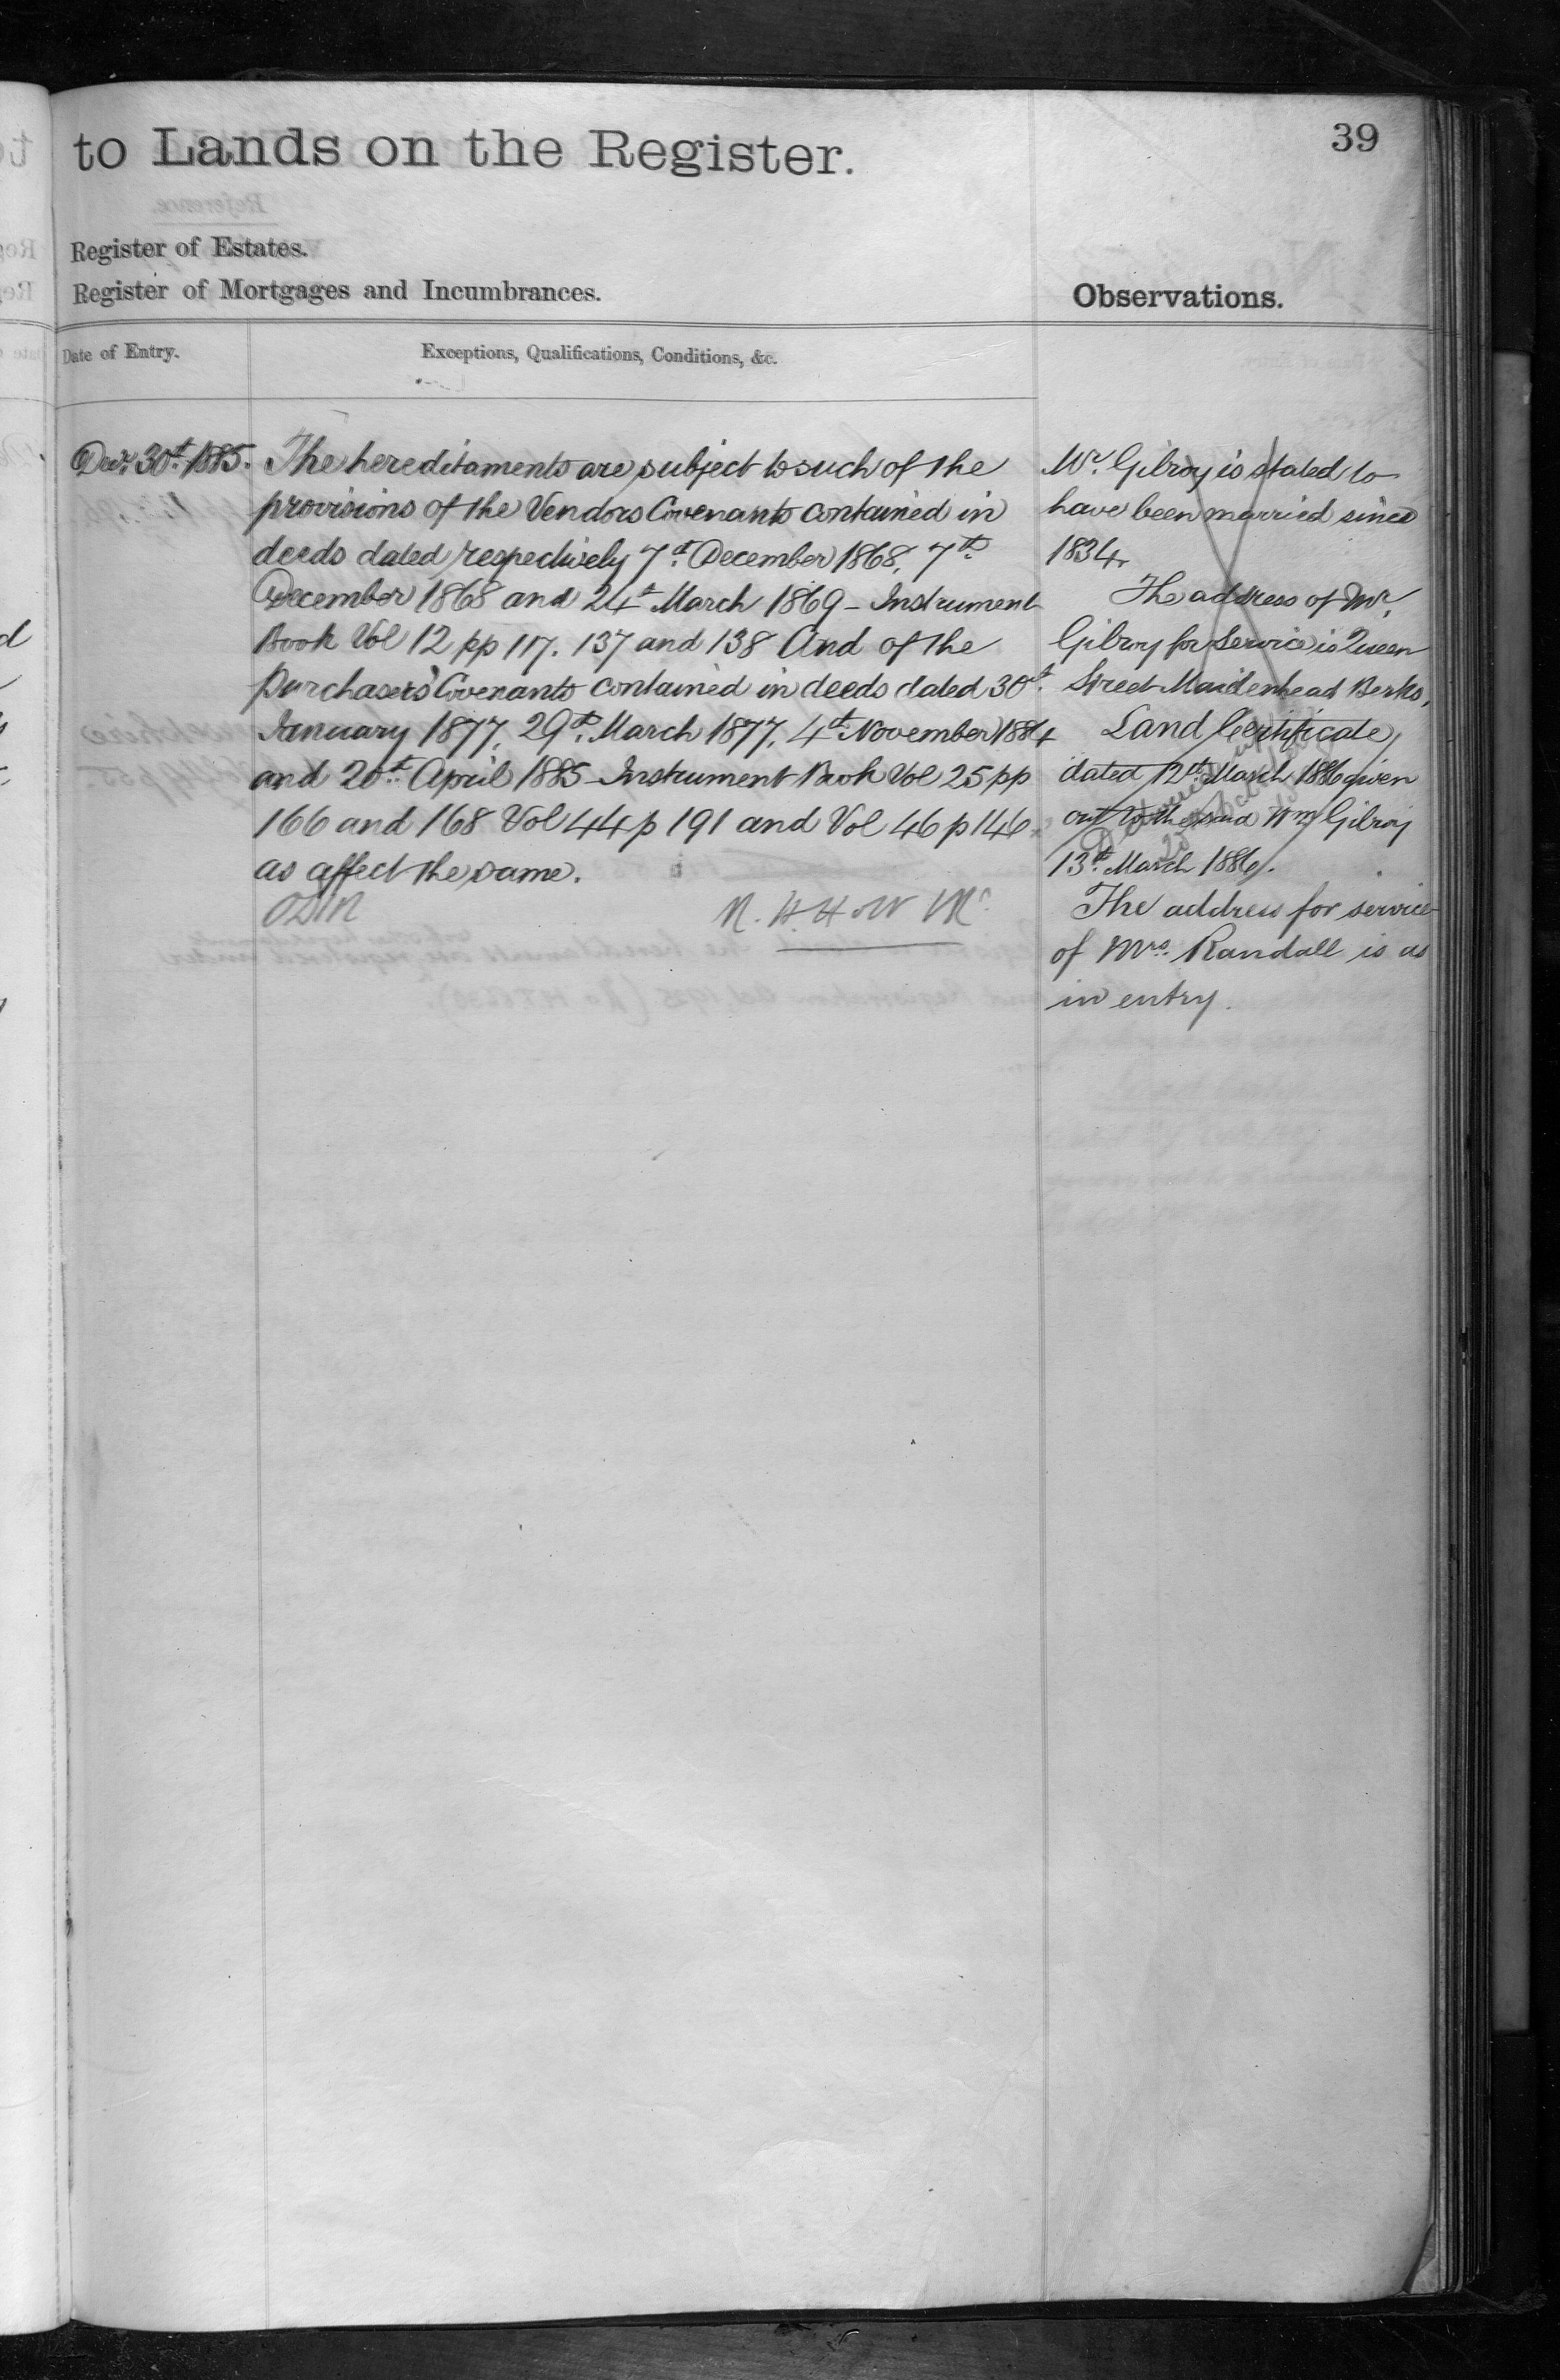 39
to Lands on the Register.
Register of Estates.
Register of Mortgages and Incumbrances.
Observations.
Date of Entry.
Exceptions, Qualifications, Conditions, &c.
Decr. 30th. 1885.
The hereditaments are subject to such of the
provisions of the Vendors Covenants contained in
deeds dated respectively 7th. December 1868, 7th.
December 1868 and 24th March 1869 - Instrument
Book Vol 12 pp 117. 137 and 138 And of the
Purchaser's Covenants contained in deeds dated 30th.
January 1877, 29th. March 1877, 4th. November 1884
and 20th. April 1885 - Instrument Book Vol 25 pp
166 and 168 Vol 44 p 191 and Vol 46 p 146
as affect the same.
Mr. Gilroy is stated to
have been married since
1834.
The address of Mr.
Gilroy for Service is Queen
Street Maidenhead Berks.
Land Certificate
dated 12th. March 1886 given
out to the said Wm Gilroy
13th. March 1886.
The address for service
of Mrs. Randall is as
in entry.